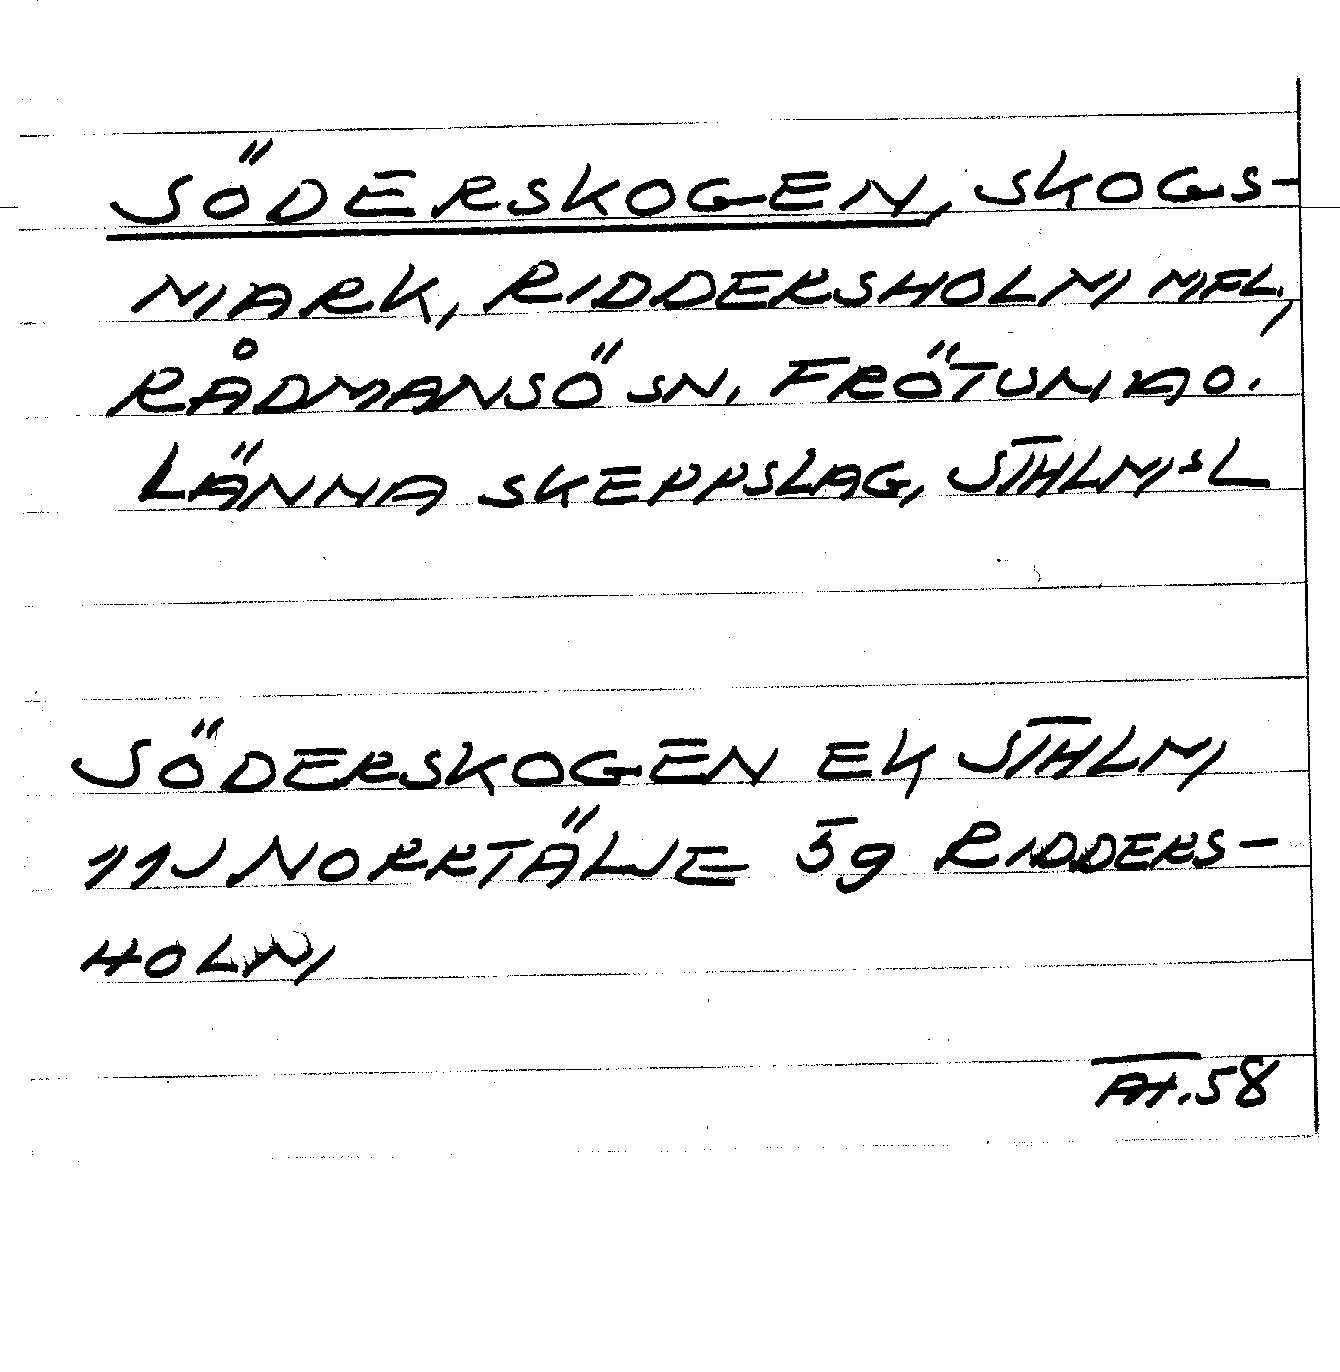 SÖDERSKOGEN, SKOGS-
MARK, RIDDERSHOLM MFL,
RÅDMANSÖ SN, FRÖTUNA O.
LÄNNA SKEPPSLAG, STHLMSL
SÖDERSKOGEN EK STHLM
11J NORRTÄLJE 5g RIDDERS-
HOLM
58